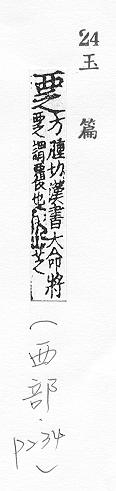 24 玉篇
覂 方腫切漢書大命將
覂謂覆也
(西部·p234)